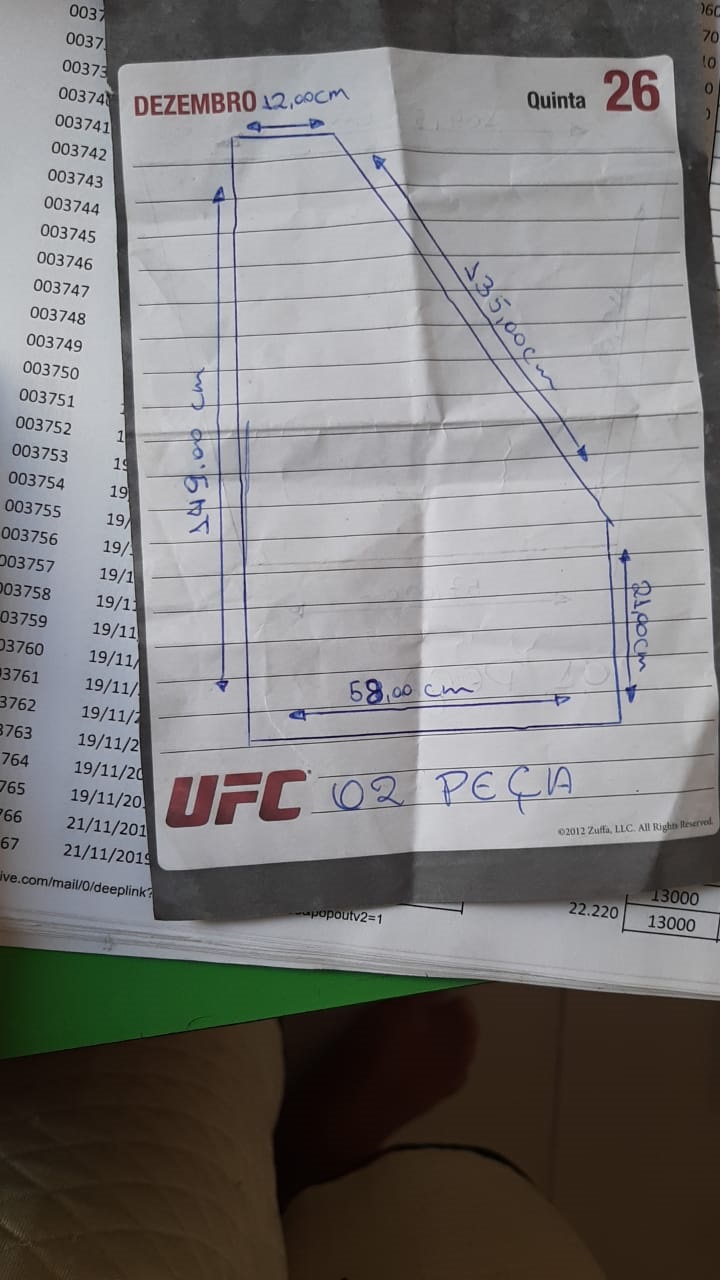 0037
0037
00373
003740
003741
003742
003743
003744
003745
003746
003747
003748
003749
003750
003751
003752
003753
003754
003755
003756
003757
003758
003759
03760
3761
3762
3763
764
765
766
67
19
19/
19/1
19/11
19/11/
19/11/
19/11/2
19/11/2
19/11/20
19/11/20
21/11/201
21/11/2019
DEZEMBRO 12,00cm
Quinta 26
135,00cm
149,00 cm
21,00cm
58,00 cm
UFC 02 PEÇA
©2012 Zuffa, LLC. All Rights Reserved.
ive.com/mail/0/deeplink?
popoutv2=1
22.220
13000
13000